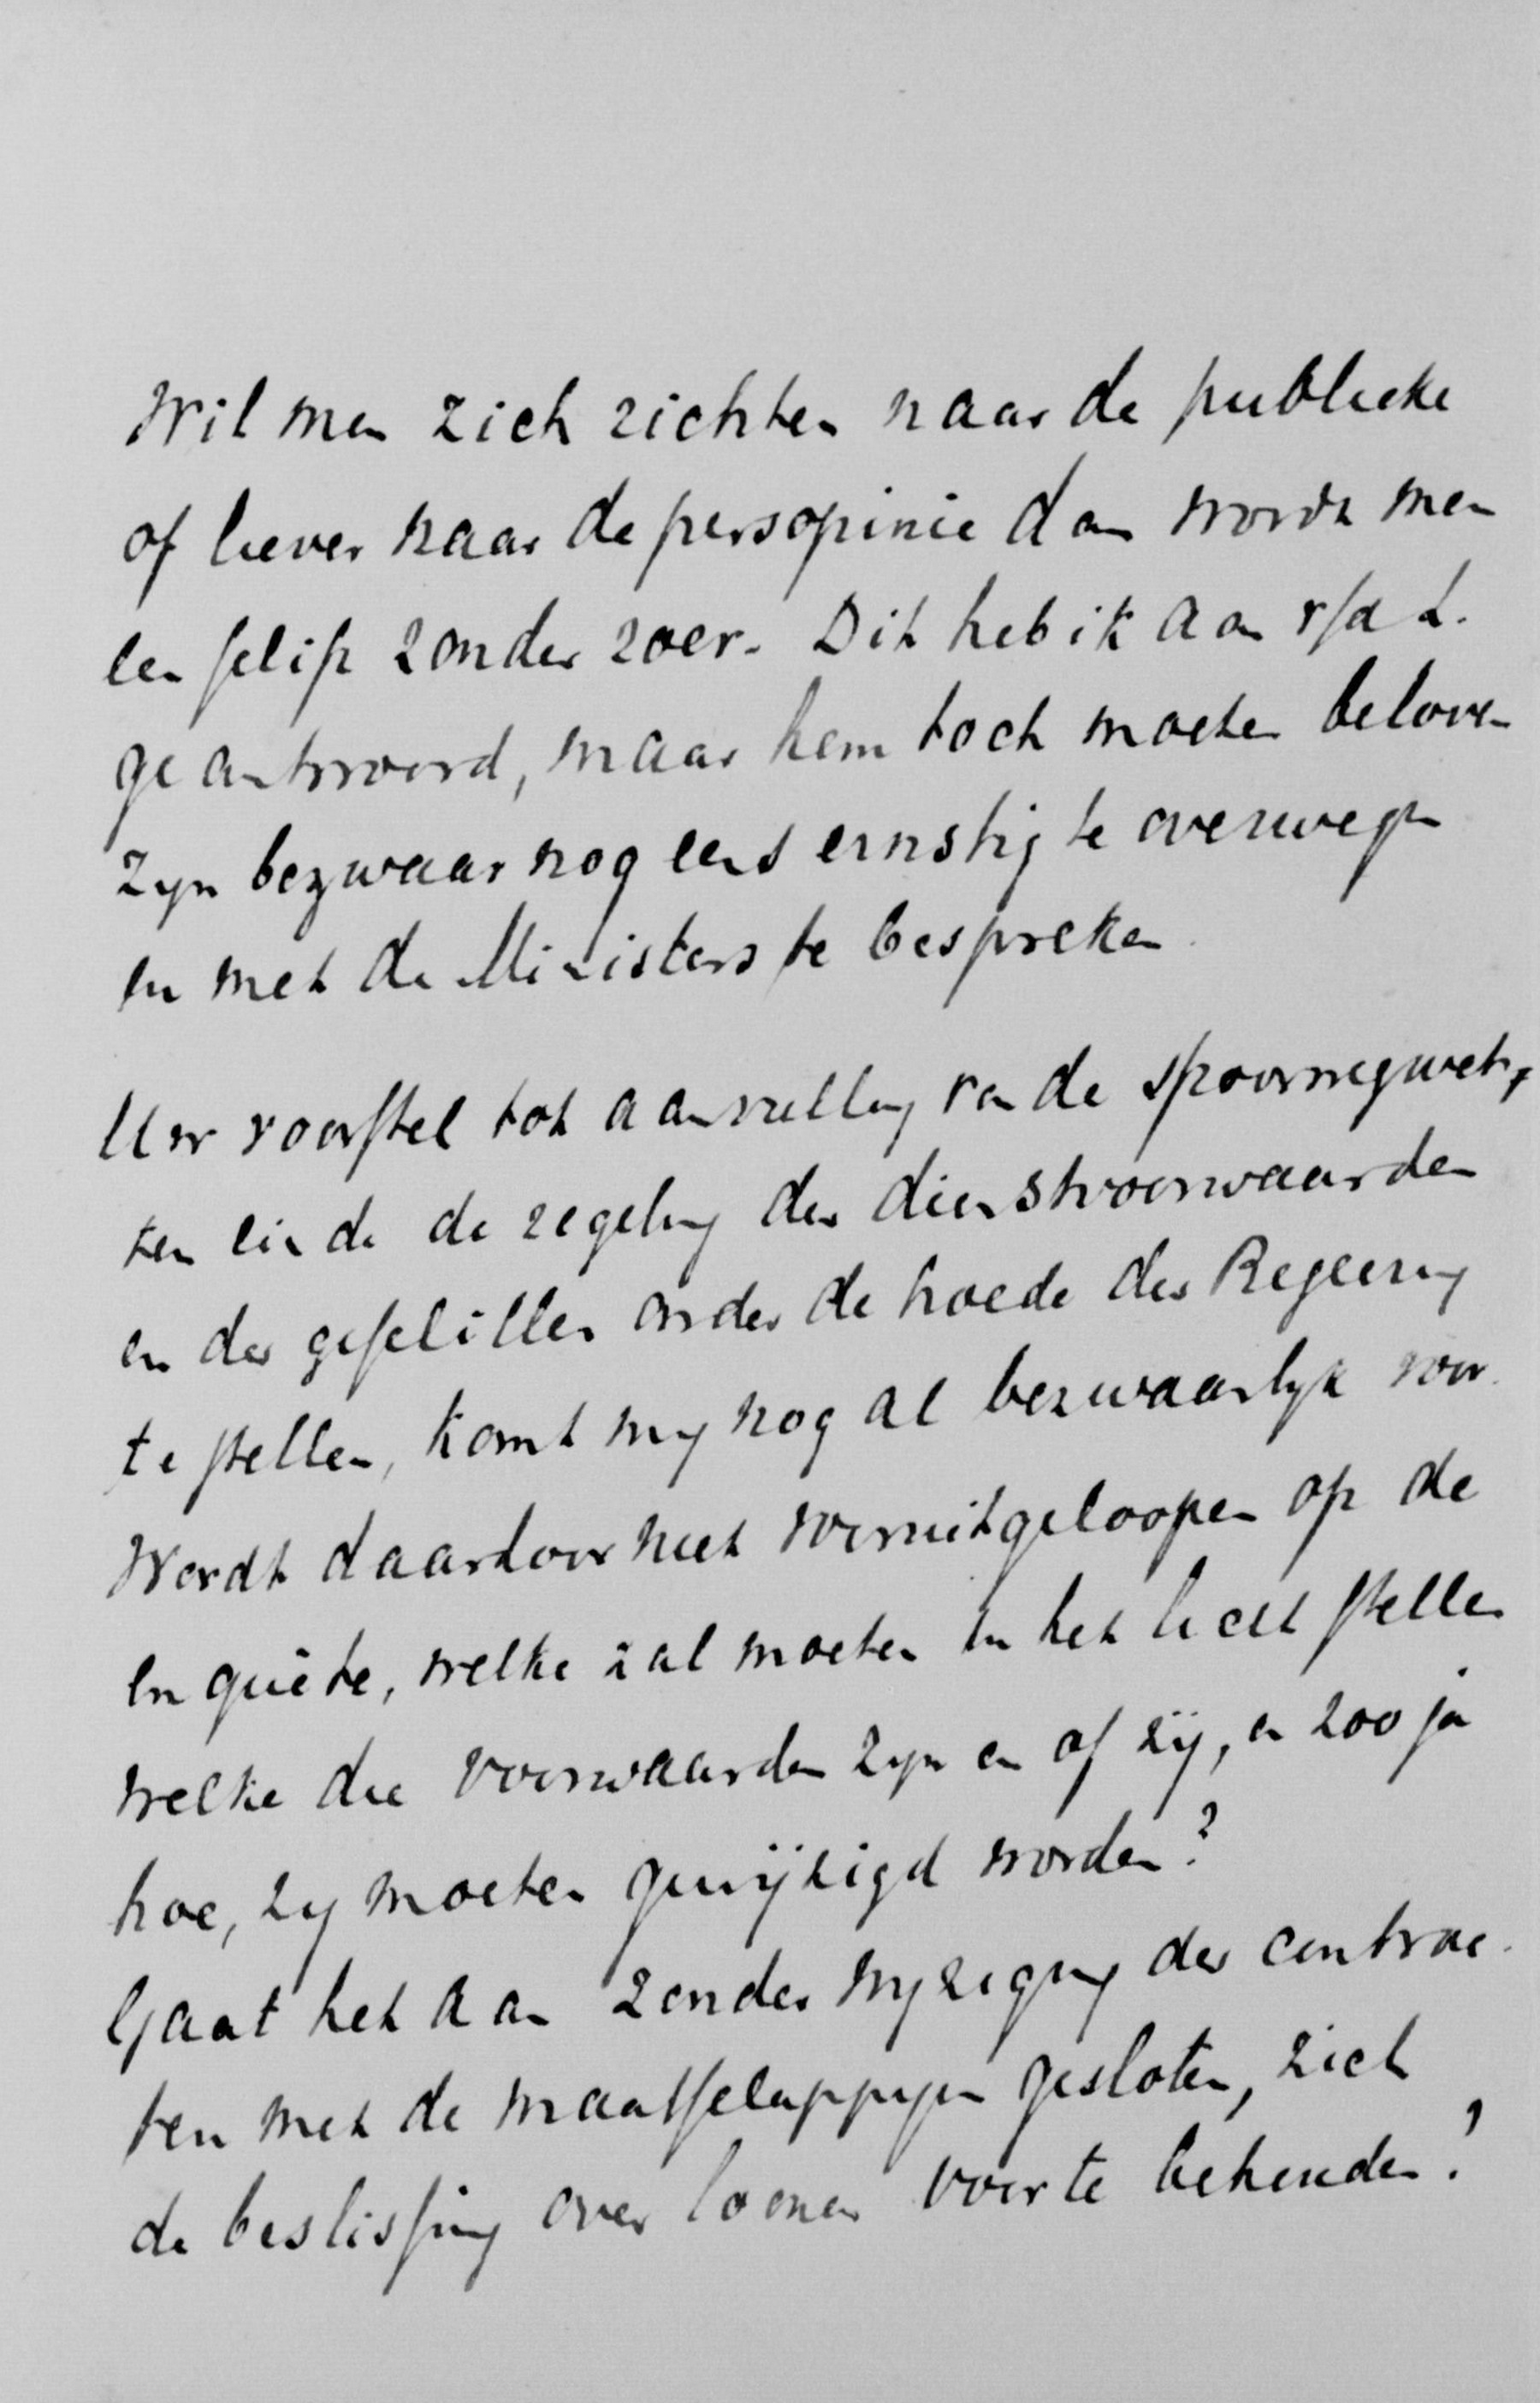 Wil men zich richten naar de publieke
of liever naar de persopinie dan wordt men
een schip zonder roer. Dit heb ik aan
geantwoord, maar hem toch moeten beloven
zyn bezwaar nog eens ernstig te overwegen
en met de Ministers te bespreken.
Uw voorstel tot aanvulling van de spoorwegwet,
ten einde de regeling der dienstvoorwaarden
en der geschillen onder de hoede der Regeering
te stellen, komt my nog al bezwaarlyk voor.
Wordt daardoor niet vooruitgeloopen op de
enquête, welke zal moeten in het licht stellen
welke die voorwaarden zyn en of zÿ, en zoo ja
hoe, zy moeten gewÿzigd worden?
Gaat het aan zonder wyziging der contrac-
ten met de maatschappyen gesloten, zich
de beslissing over loonen voor te behouden?